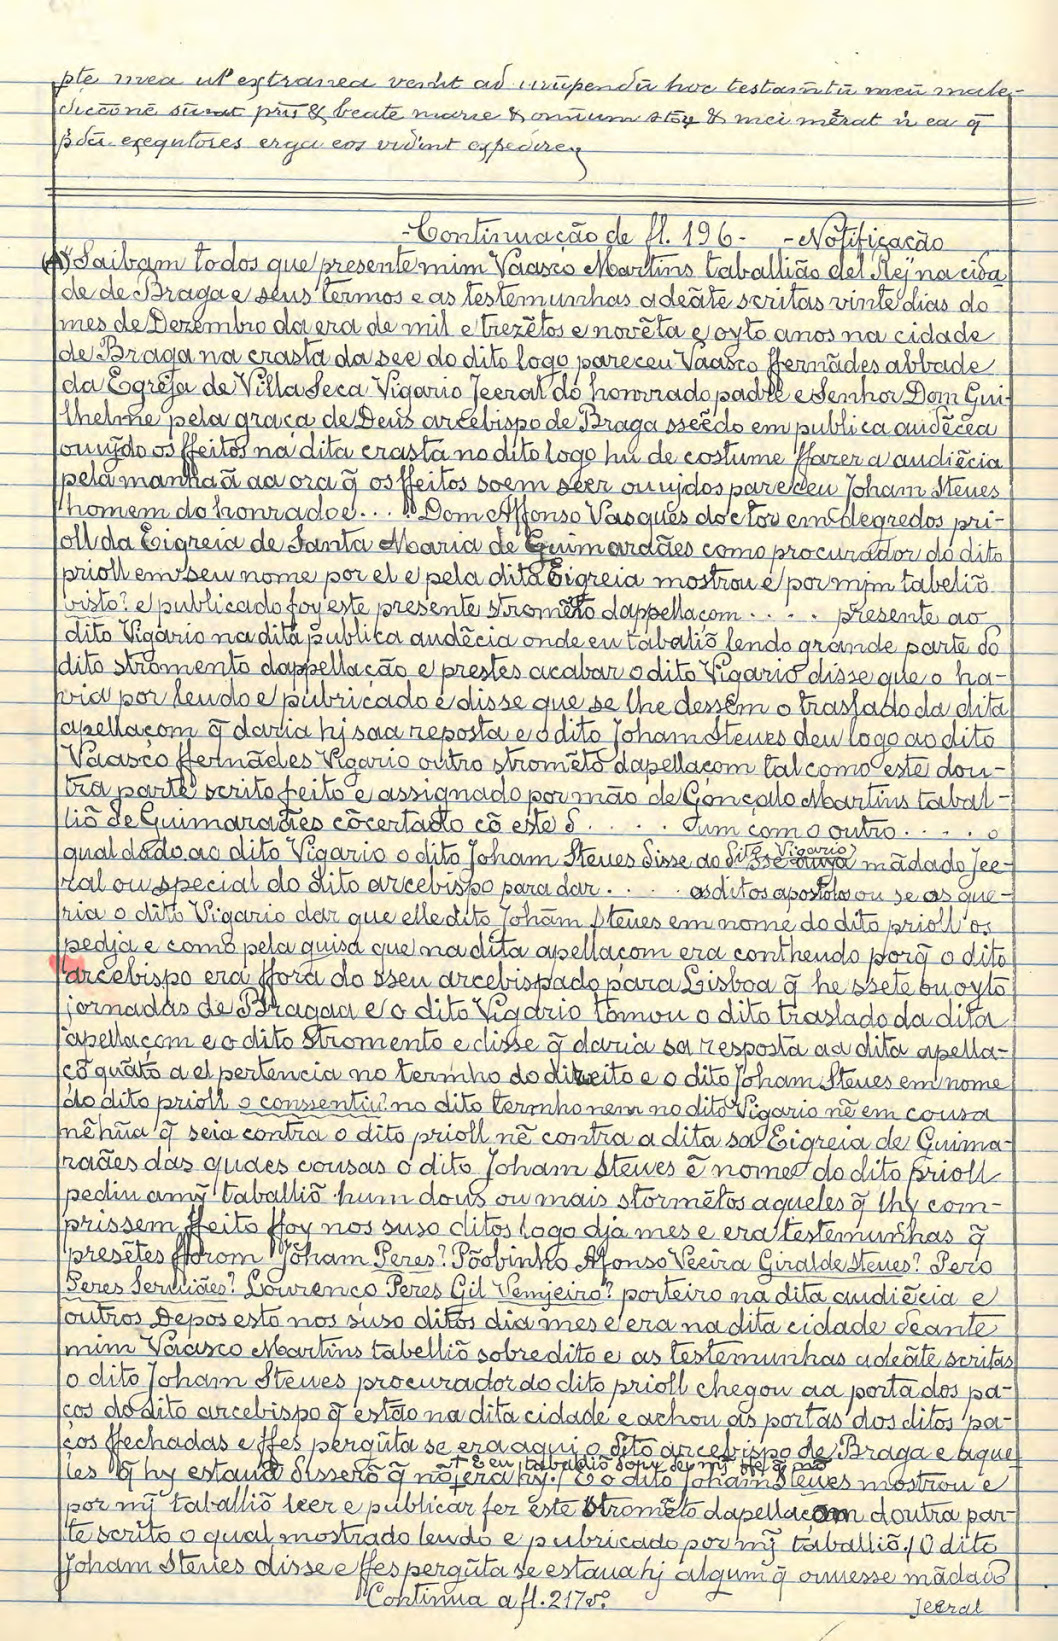 pte mea ul' extranea venit ad irrūpendū hoc testam̃tū meū male-
diccōnē sūat pris & beate marie & omium stōȝ & mei mērat n̄ ea q̄
p̄dci exequtores erga eos vidint expedire
-Continuação de fl. 196- -Notificação
(A) Saibam todos que presente mim Vaasco Martins taballião del Rey na cida-
de de Braga e seus termos e as testemunhas adeāte scritas vinte dias do
mes de Dezembro da era de mil e trezētos e novēta e oyto anos na cidade
de Braga na crasta da see do dito logo pareceu Vaasco ffernādes abbade
da Egreja de Villa Seca Vigario Jeeral do honrrado padre e Senhor Dom Gui-
lhelme pela graça de Deus arcebispo de Braga sseēdo em publica audēcea
ouuỹdo os ffeitos na dita crasta no dito logo hu de costume ffazer a audiēcia
pela manhaã aa ora q̄ os ffeitos soem seer ouujdos pareceu Joham Steues
homem do honrado e . . . . Dom Affonso Vasques doctor em degredos pri-
oll da Eigreia de Santa Maria de Guimarāães como procurador do dito
prioll em seu nome por el e pela dita Eigreia mostrou e por mjm tabeliō
visto? e publicado foy este presente stromēto dappellaçom . . . . presente ao
dito Vigario na dita publica audēcia onde eu tabaliō lendo grande parte do
dito stromento dappellação e prestes acabar o dito Vigario disse que o ha-
via por leudo e pubricado e disse que se lhe dessem o traslado da dita
apellaçom q̄ daria hj saa reposta e o dito Joham Steues deu logo ao dito
Vaasco ffernādes Vigario outro stromēto dapellaçom tal como este dou-
tra parte scrito feito e assignado por mão de Gonçalo Martins tabal-
liō de Guimarāães cōcertado cō este d . . . . . um com o outro . . . . . o
qual dado ao dito Vigario o dito Joham Steues disse ao dito Vigario sse auya mādado Jee-
ral ou special do dito arcebispo para dar . . . . as ditos apostolos ou se os que-
ria o dito Vigario dar que elle dito Joham Steues em nome do dito prioll os
pedja e como pela guisa que na dita apellaçom era contheudo porq̄ o dito
arcebispo era ffora do sseu arcebispado para Lisboa q̄ he ssete ou oyto
jornadas de Bragaa e o dito Vigario tomou o dito traslado da dita
apellaçom e o dito Stromento e disse q̄ daria sa resposta aa dita apella-
çō quāto a el pertencia no termho do direito e o dito Joham Steues em nome
do dito prioll o conssentiu? no dito termho nem no dito Vigario nē em cousa
nēhũa q̄ seia contra o dito prioll nē contra a dita sa Eigreia de Guima-
raães das quaes cousas o dito Joham Steues ē nome do dito prioll
pediu a mỹ taballiō hum dous ou mais stormētos aqueles q̄ lhy com-
prissem ffeito ffoy nos suso ditos logo dja mes e era testemunhas q̄
presētes fforom Joham Peres? Pōobinho Afonso Veeira Giralde Steues? Pero
Peres Seruiāes? Lourenço Peres Gil Vemjeiro? porteiro na dita audiēcia e
outros Depos esto nos suso ditos dia mes e era na dita cidade deante
mim Vaasco Martins tabelliō sobredito e as testemunhas adeāte scritas
o dito Joham Steues procurador do dito prioll chegou aa porta dos pa-
ços do dito arcebispo q̄ estão na dita cidade e achou as portas dos ditos pa-
ços ffechadas e ffes pergūta se era aqui o dito arcebispo de Braga e aque-
+ E eu tabaliō dou de mỹ ffe q̄ nō
les q̄ hy estauā disserō q̄ nō + era hy./ E o dito Joham Steues mostrou e
por mỹ taballiō leer e publicar fez este Stromēto dapellaçom doutra par-
te scrito o qual mostrado leudo e pubricado por mỹ taballiō./ O dito
Joham Steues disse e ffes pergūta se estaua hj algum q̄ ouuesse mādado
Continua a fl. 217 vº.
Jeeral